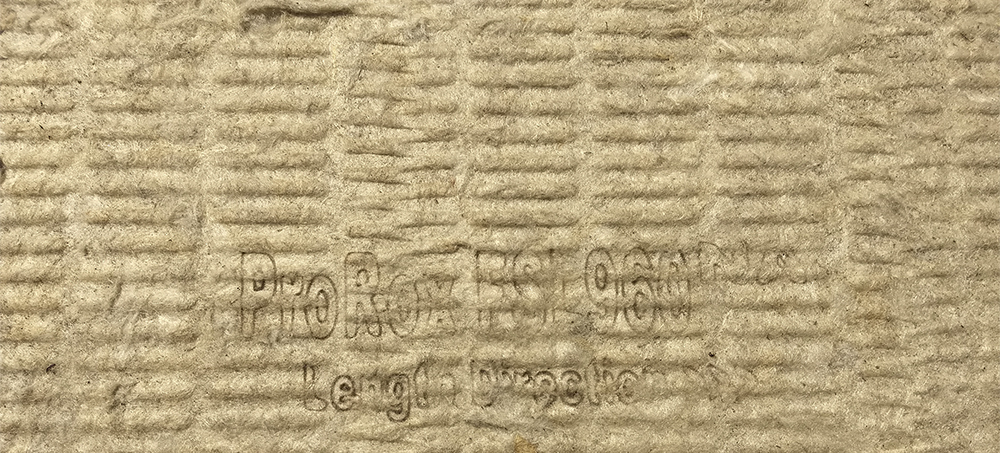 ProRox ESL 960
Length Direction